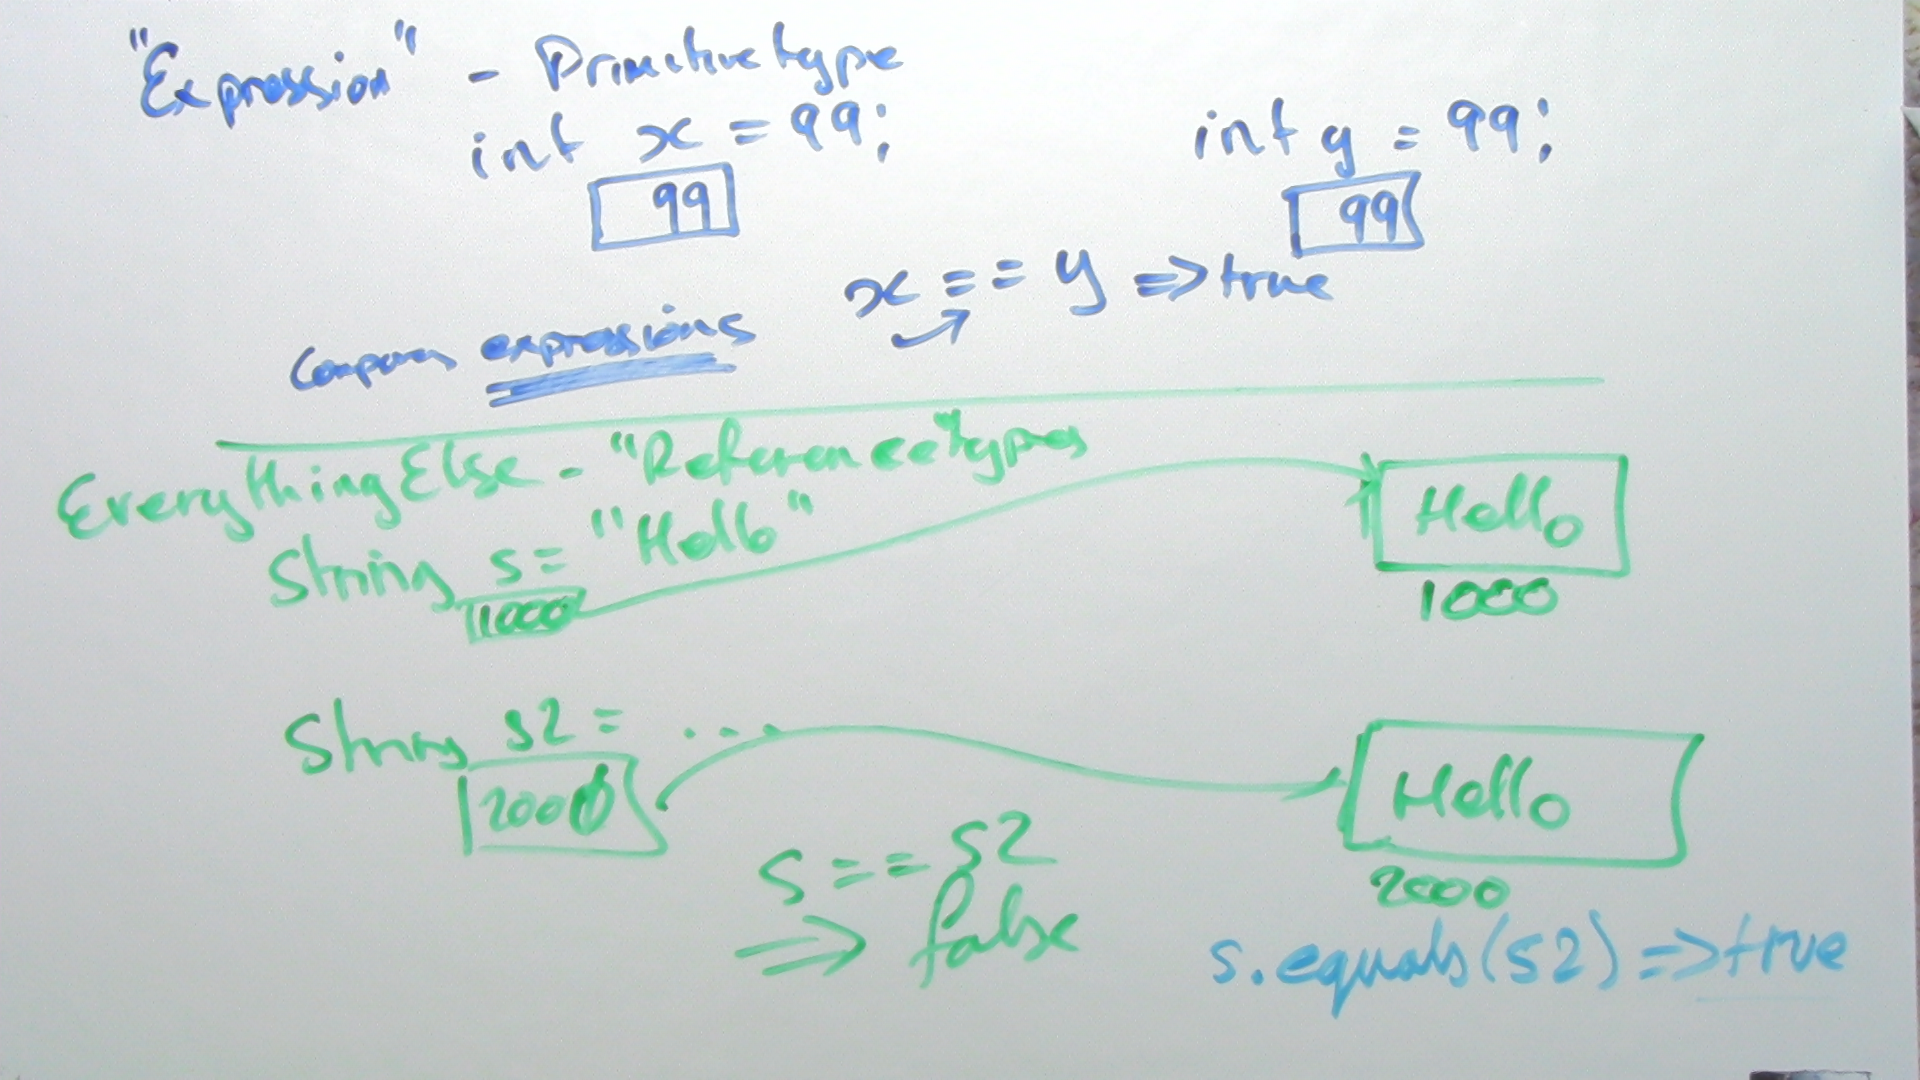 "Expression" - Primitive type
int x = 99;
int y = 99;
99
99
x == y => true
Compares expressions
EverythingElse - "Reference" types
String s = "Hello"
Hello
1000
1000
String s2 = ...
2000
Hello
2000
s == s2
=> false
s.equals(s2) => true